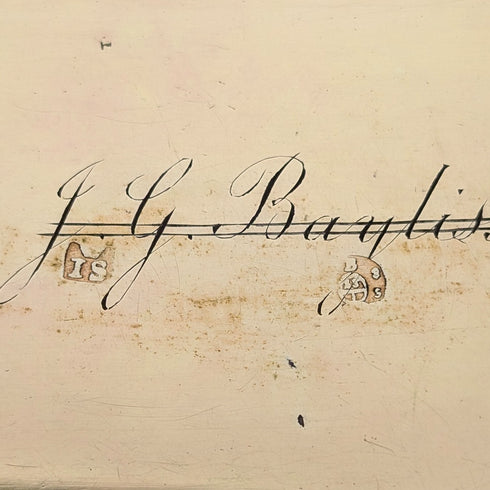 J. G. Baylis
IS